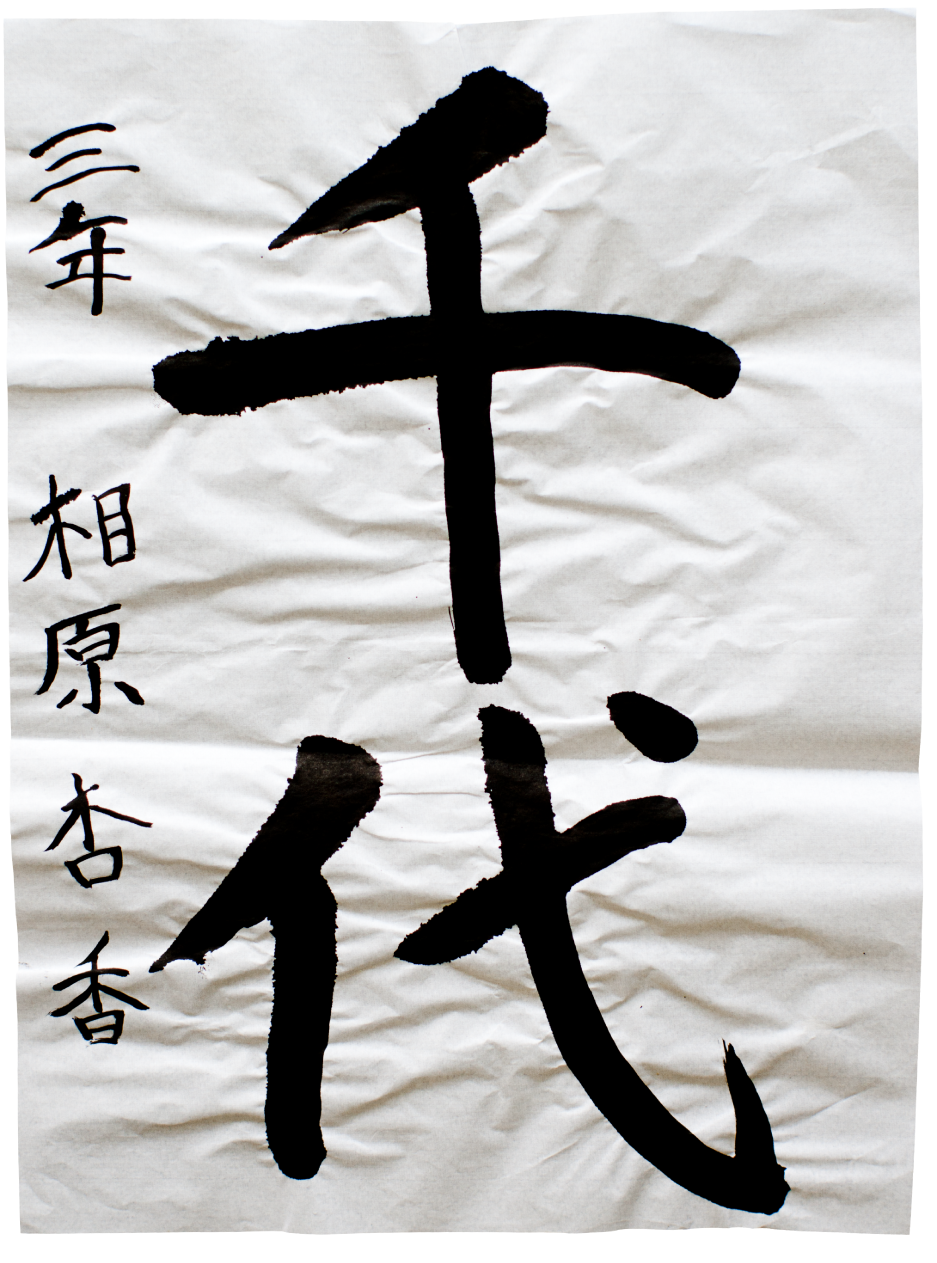 千代
三年 相原 杏香